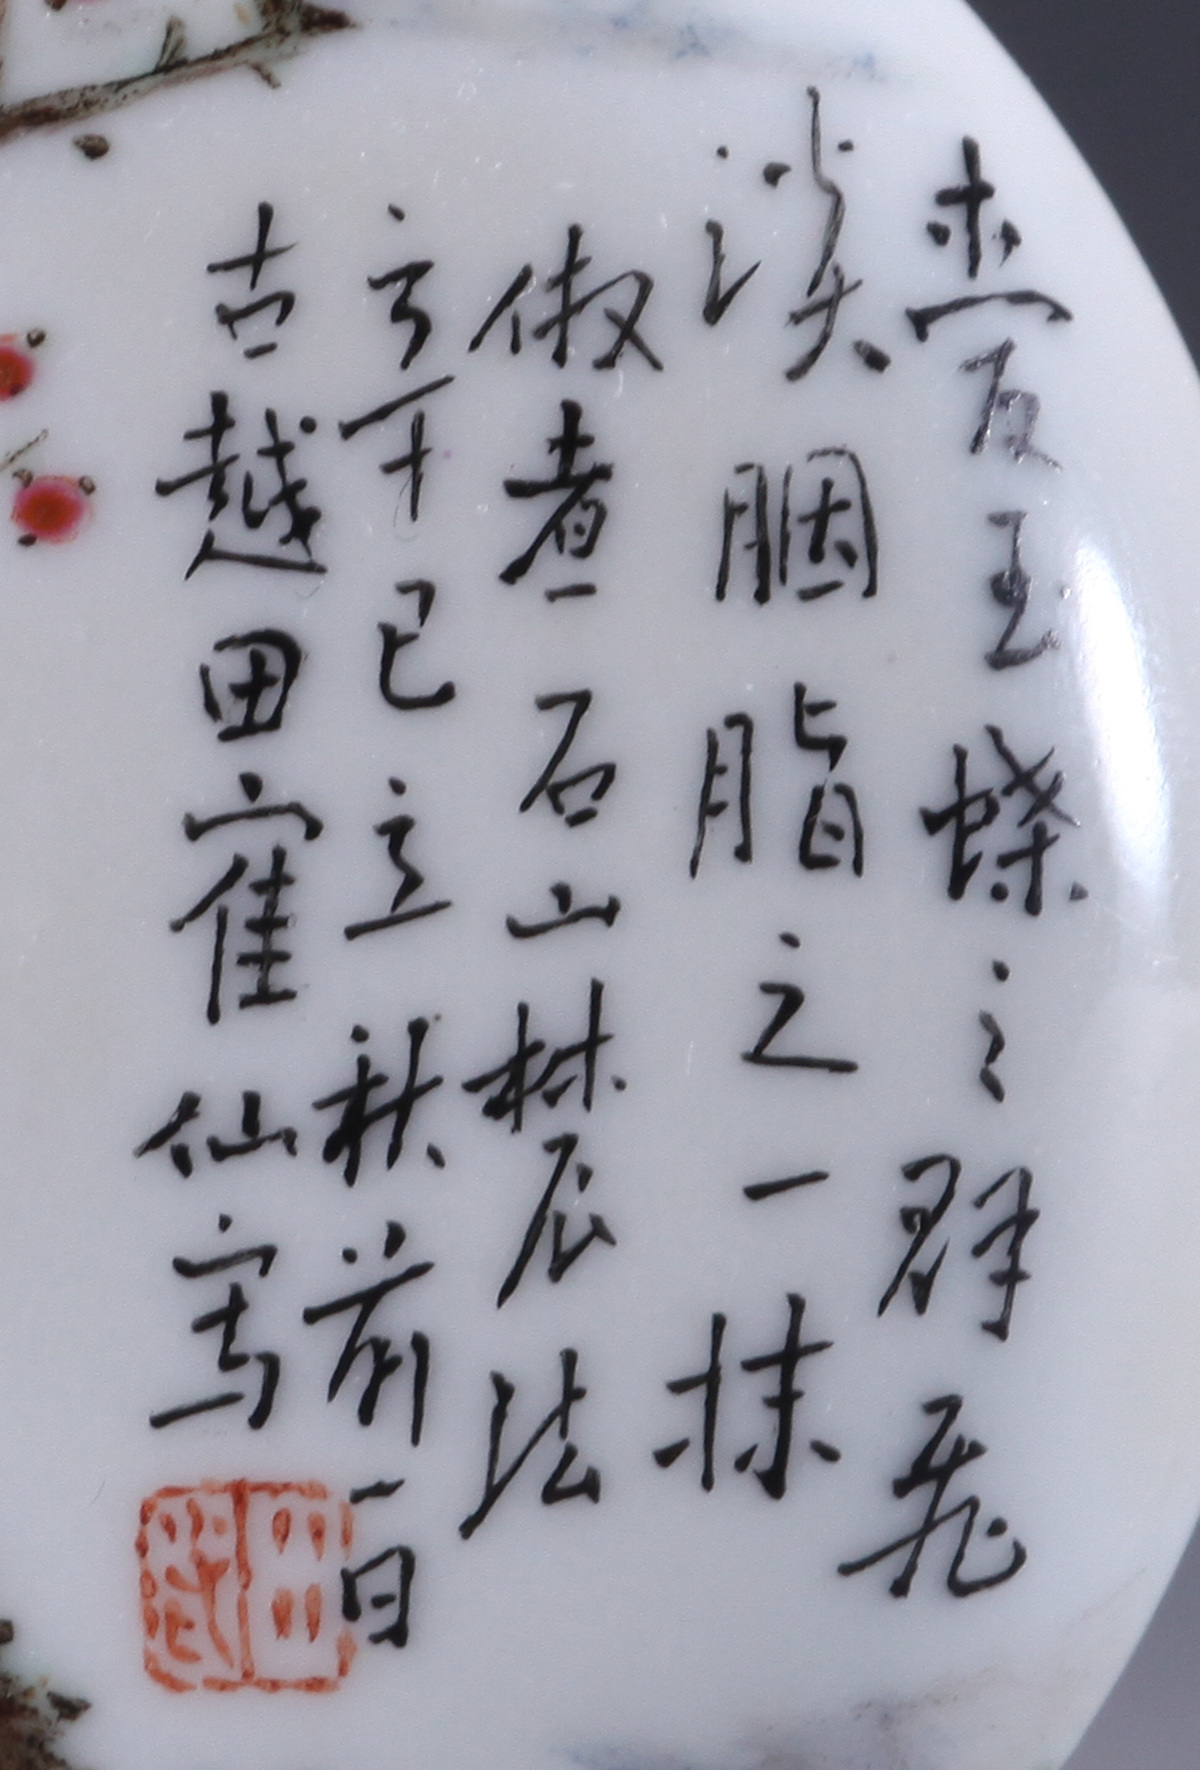 玉蝶之群飛
淡胭脂之一抹
倣煮石山農法
辛巳立秋前一日
古越田寉仙寫